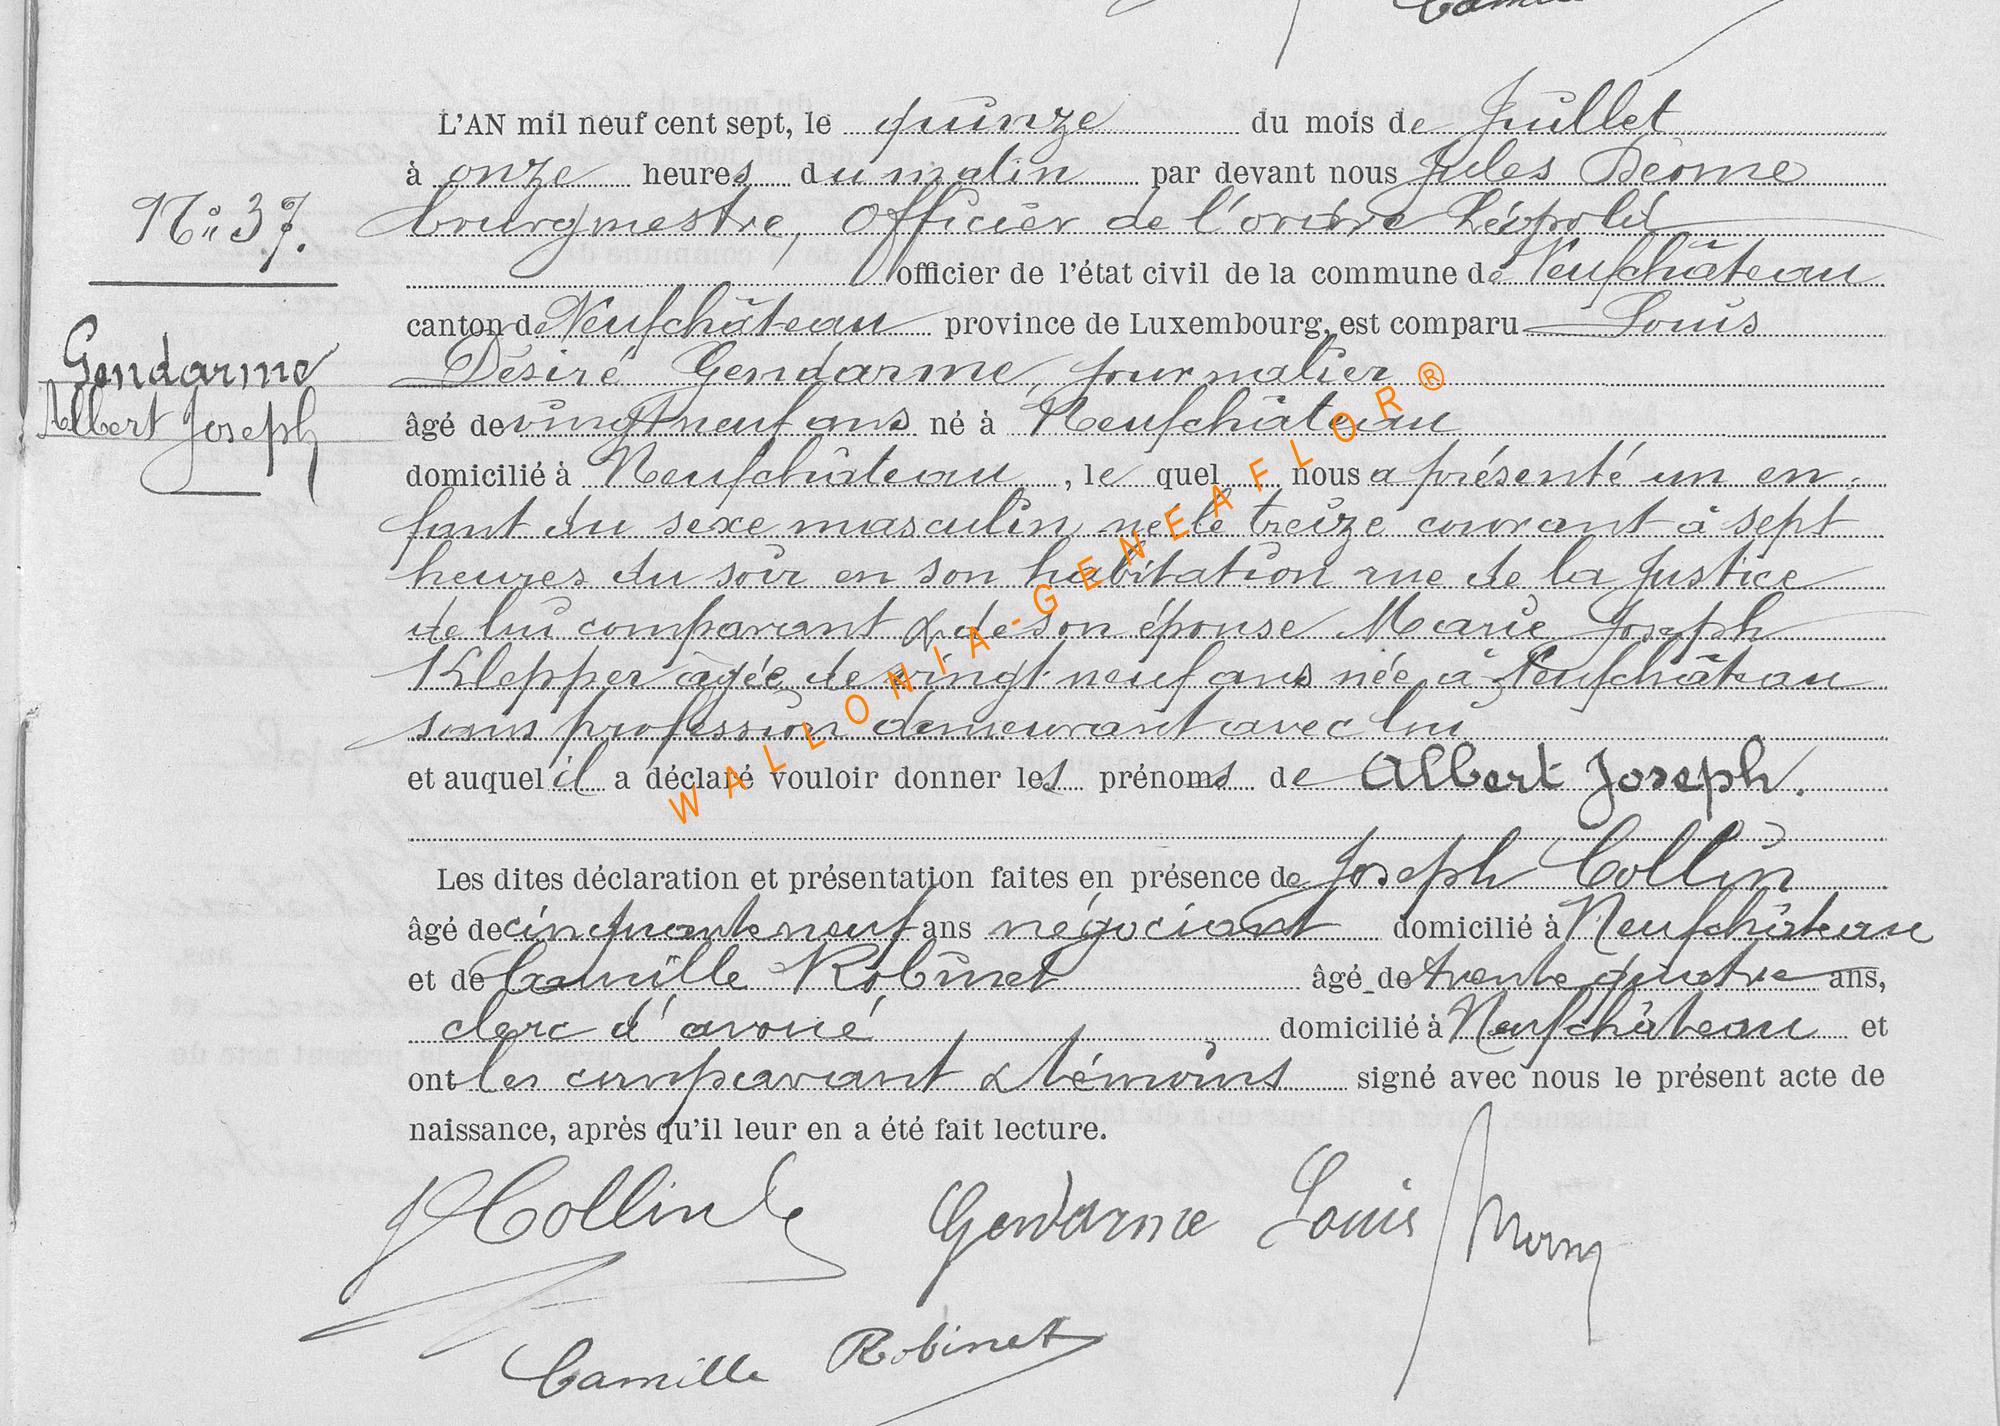 L'AN mil neuf cent sept, le quinze du mois de Juillet
à onze heures du matin par devant nous Jules
N° 37.
bourgmestre, Officier de l'ordre Léopold
officier de l'état civil de la commune de Neufchâteau
canton de Neufchâteau province de Luxembourg, est comparu Louis
Gendarme
Albert Joseph
Désiré Gendarme, journalier
âgé de vingt neuf ans né à Neufchâteau
domicilié à Neufchâteau, le quel nous a présenté un en-
fant du sexe masculin né le treize courant à sept
heures du soir en son habitation rue de la Justice
de lui comparant & de son épouse Marie Joseph
Klepper âgée de vingt-neuf ans née à Neufchâteau
sans profession demeurant avec lui
et auquel il a déclaré vouloir donner les prénoms de Albert Joseph.
WALLONIA-GENEAFLOR®
Les dites déclaration et présentation faites en présence de Joseph Collin
âgé de cinquante neuf ans négociant domicilié à Neufchâteau
et de Camille Robinet âgé de trente quatre ans,
clerc d'avoué domicilié à Neufchâteau et
ont les comparant & témoins signé avec nous le présent acte de
naissance, après qu'il leur en a été fait lecture.
J Collin Gendarme Louis
Camille Robinet